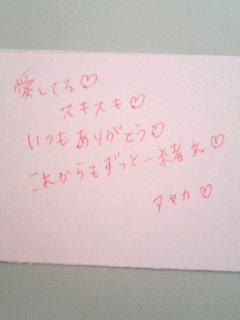 愛してる♡
スキスキ♡
いつもありがとう♡
これからもずっと一緒ね♡
アヤカ♡